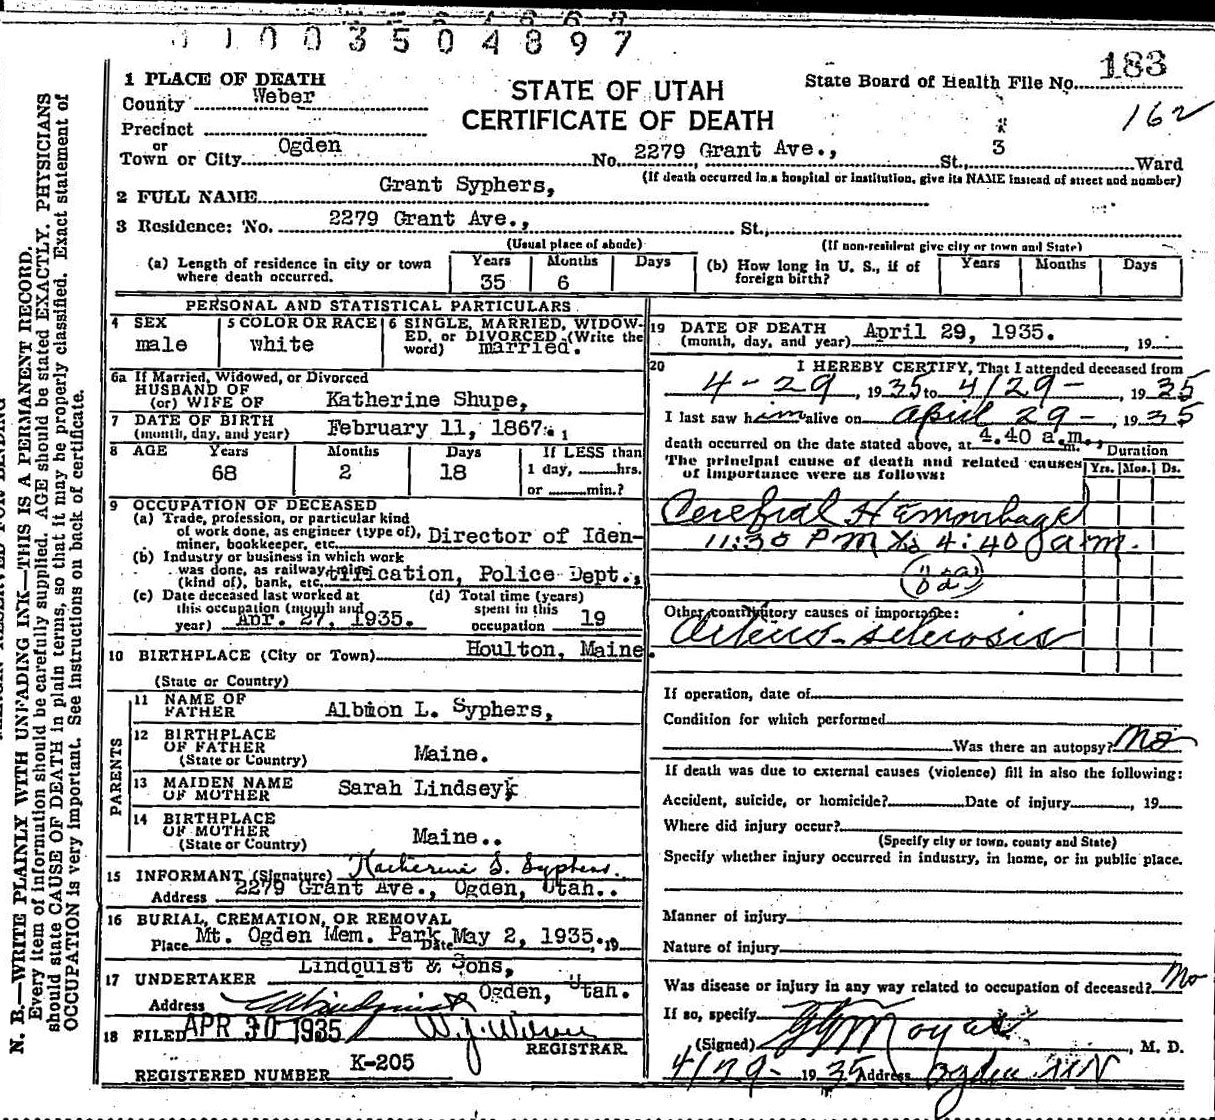 1 0 0 3 5 0 4 8 9 7
183
162
STATE OF UTAH
CERTIFICATE OF DEATH
State Board of Health File No.
1 PLACE OF DEATH
County Weber
Precinct
or
Town or City Ogden No. 2279 Grant Ave., St., 3 Ward
(If death occurred in a hospital or institution, give its NAME instead of street and number)
2 FULL NAME Grant Syphers,
3 Residence: No. 2279 Grant Ave., St.,
(Usual place of abode) (If non-resident give city or town and State)
(a) Length of residence in city or town where death occurred. Years 35 Months 6 Days
(b) How long in U. S., if of foreign birth? Years Months Days
PERSONAL AND STATISTICAL PARTICULARS
4 SEX male
5 COLOR OR RACE white
6 SINGLE, MARRIED, WIDOWED, or DIVORCED (Write the word) married.
6a If Married, Widowed, or Divorced
HUSBAND OF
(or) WIFE OF Katherine Shupe,
7 DATE OF BIRTH
(month, day, and year) February 11, 1867.
8 AGE Years 68 Months 2 Days 18 If LESS than 1 day, hrs. or min.?
9 OCCUPATION OF DECEASED
(a) Trade, profession, or particular kind of work done, as engineer (type of), miner, bookkeeper, etc. Director of Iden-
(b) Industry or business in which work was done, as railway, mine (kind of), bank, etc. tification, Police Dept.,
(c) Date deceased last worked at this occupation (month and year) Apr. 27, 1935.
(d) Total time (years) spent in this occupation 19
10 BIRTHPLACE (City or Town) Houlton, Maine.
(State or Country)
PARENTS
11 NAME OF FATHER Albion L. Syphers,
12 BIRTHPLACE OF FATHER (State or Country) Maine.
13 MAIDEN NAME OF MOTHER Sarah Lindsey
14 BIRTHPLACE OF MOTHER (State or Country) Maine..
15 INFORMANT (Signature) Katherine S. Syphers.
Address 2279 Grant Ave., Ogden, Utah..
16 BURIAL, CREMATION, OR REMOVAL
Place Mt. Ogden Mem. Park Date May 2, 1935. 19
17 UNDERTAKER Lindquist & Sons,
Address Ogden, Utah.
18 FILED APR 30 1935
REGISTRAR
REGISTERED NUMBER K-205
19 DATE OF DEATH
(month, day, and year) April 29, 1935. , 19
20 I HEREBY CERTIFY, That I attended deceased from
4-29 , 1935 to 4/29- , 1935
I last saw him alive on April 29- , 1935
death occurred on the date stated above, at 4.40 a.m.,
The principal cause of death and related causes of importance were as follows:
Duration
Yrs. Mos. Ds.
Cerebral Hemorrhage
11:30 PM to 4:40 a m.
Other contributory causes of importance:
Arterio-sclerosis
If operation, date of
Condition for which performed
Was there an autopsy? No
If death was due to external causes (violence) fill in also the following:
Accident, suicide, or homicide? Date of injury , 19
Where did injury occur?
(Specify city or town, county and State)
Specify whether injury occurred in industry, in home, or in public place.
Manner of injury
Nature of injury
Was disease or injury in any way related to occupation of deceased? No
If so, specify
(Signed) , M. D.
4/29- 1935 Address Ogden
N. B.—WRITE PLAINLY WITH UNFADING INK—THIS IS A PERMANENT RECORD.
Every item of information should be carefully supplied. AGE should be stated EXACTLY. PHYSICIANS
should state CAUSE OF DEATH in plain terms, so that it may be properly classified. Exact statement of
OCCUPATION is very important. See instructions on back of certificate.